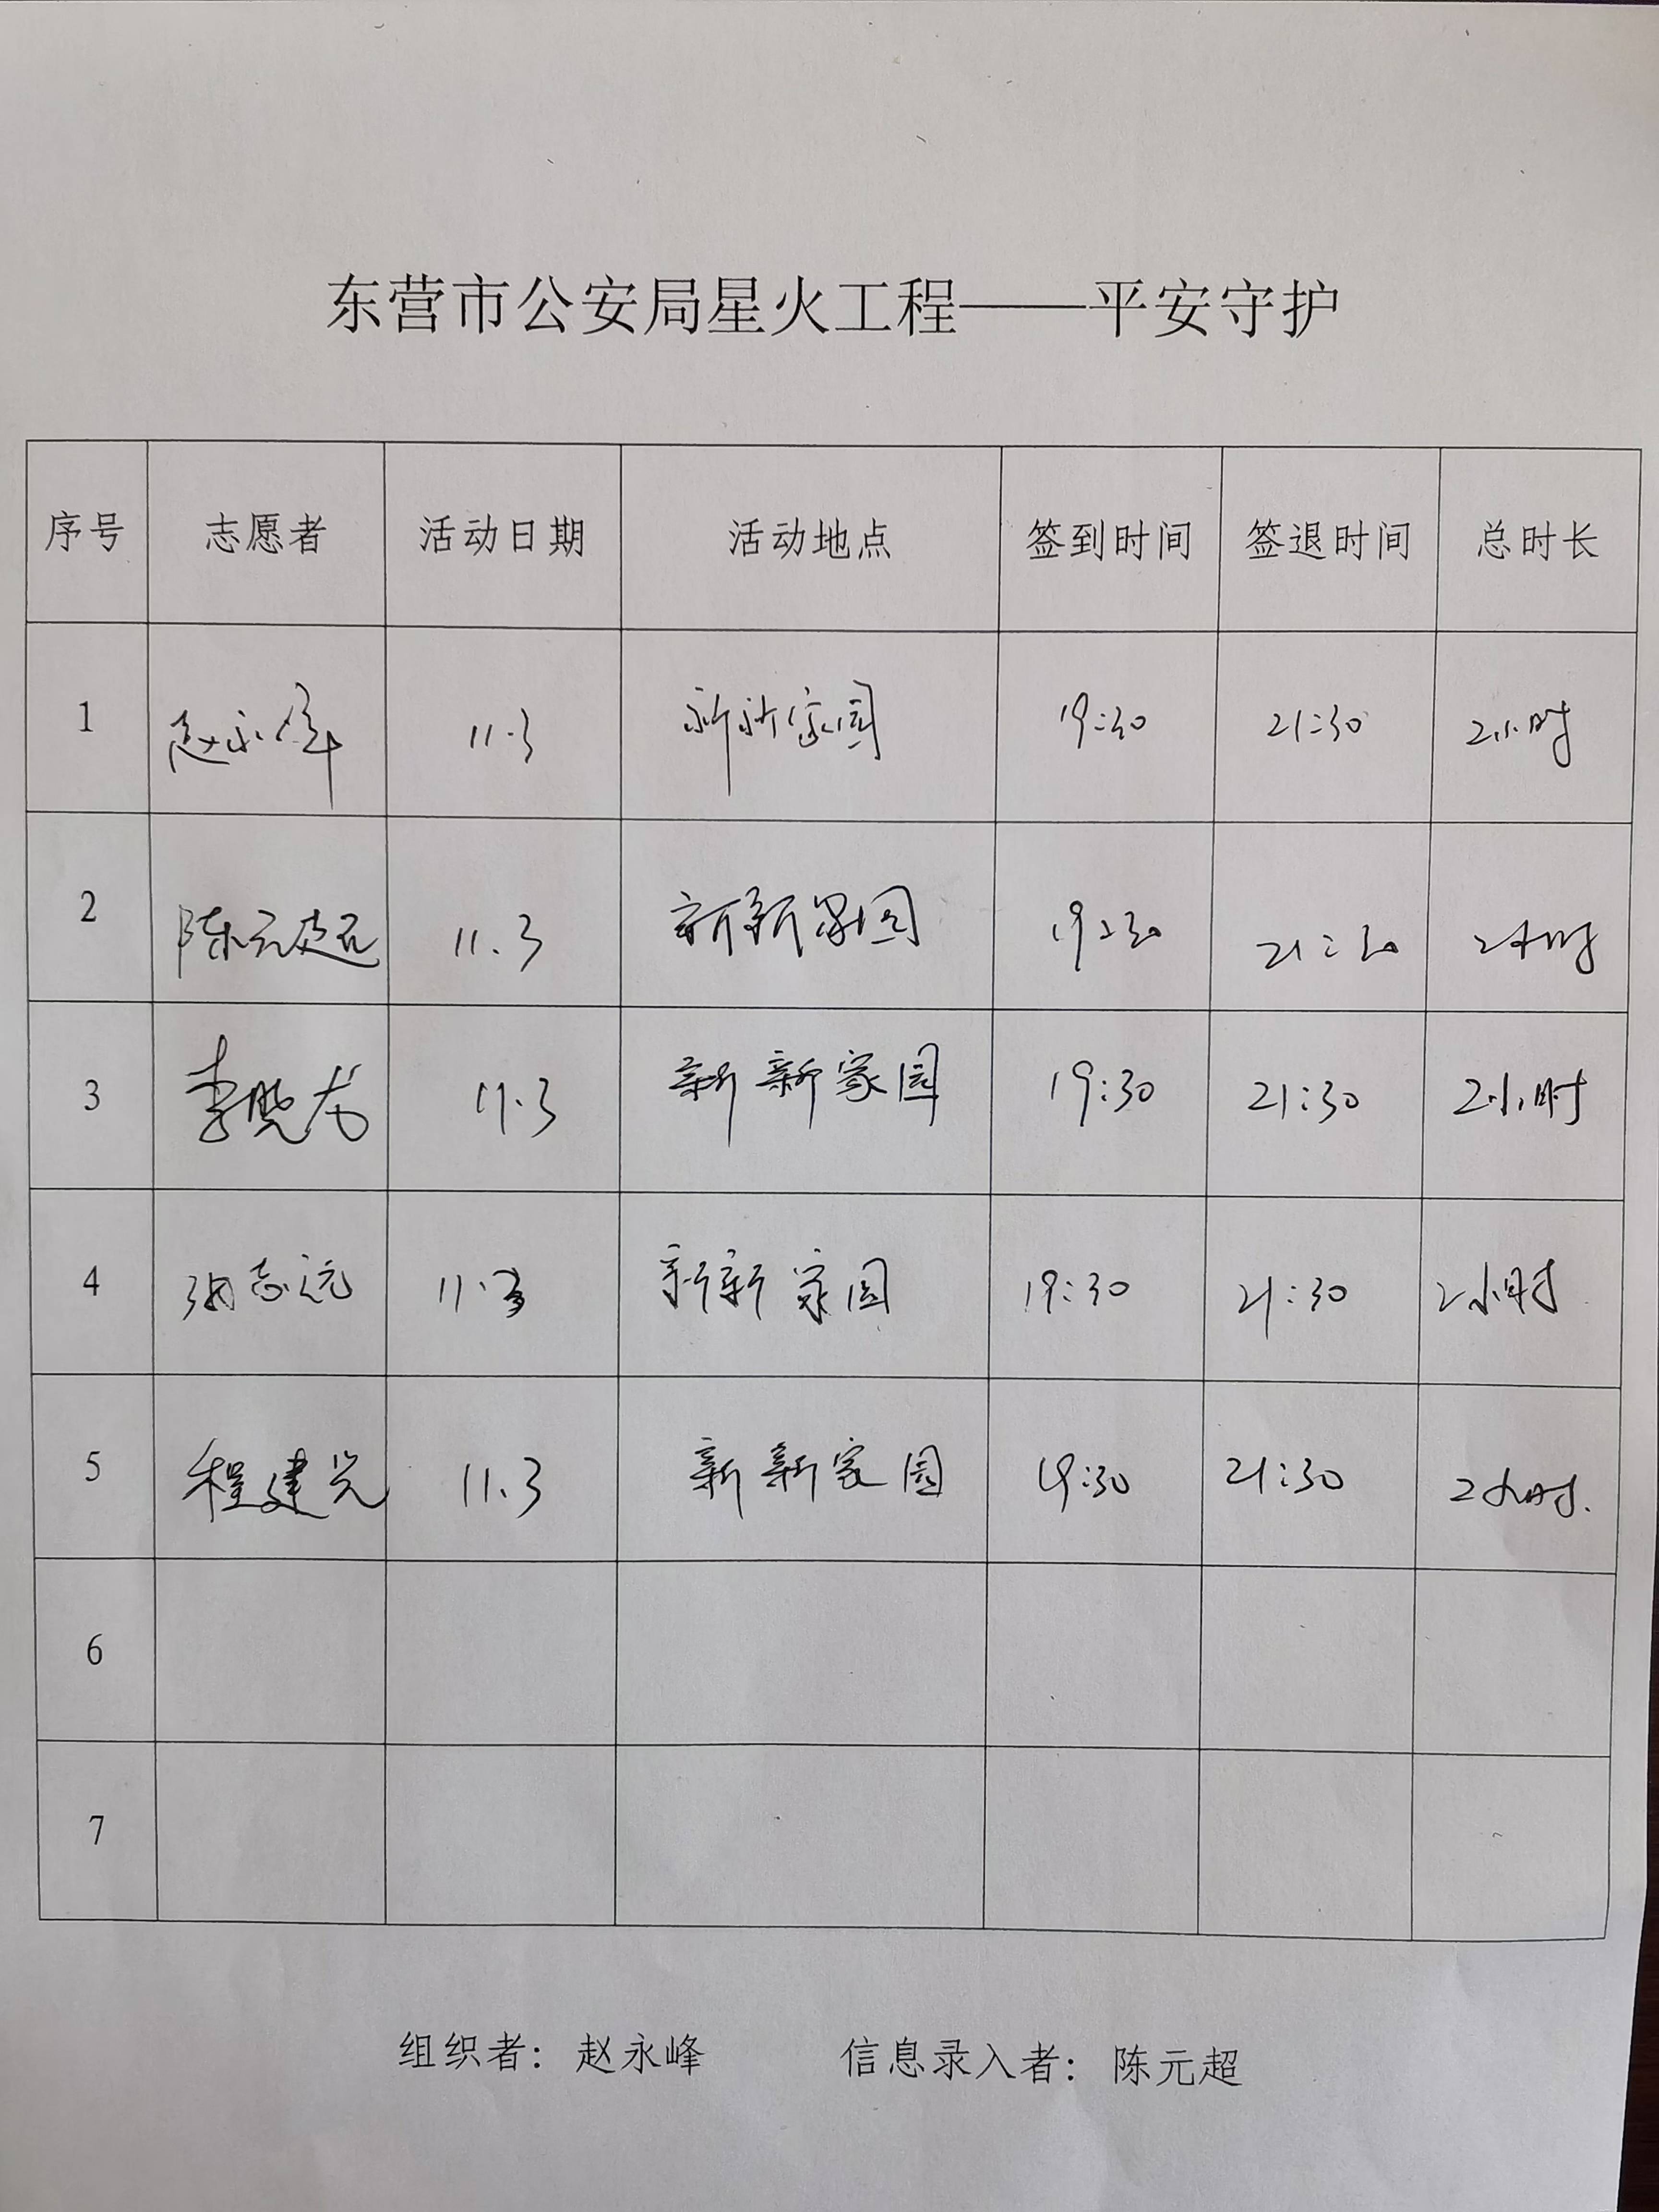 东营市公安局星火工程——平安守护
序号 志愿者 活动日期 活动地点 签到时间 签退时间 总时长
1 赵永峰 11.3 新新家园 19:30 21:30 2小时
2 陈元超 11.3 新新家园 19:30 21:30 2小时
3 李晓龙 11.3 新新家园 19:30 21:30 2小时
4 张志远 11.3 新新家园 19:30 21:30 2小时
5 程建光 11.3 新新家园 19:30 21:30 2小时.
6
7
组织者：赵永峰 信息录入者：陈元超